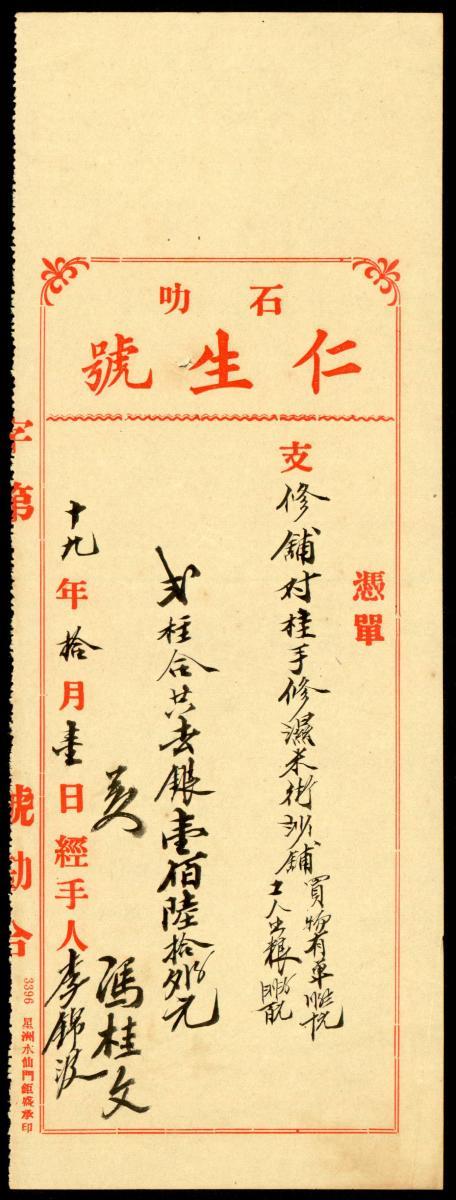 石叻
仁生號
憑單
支修舖対桂手修濕米街沙舖
買物有單
士人出粮
弍柱合共去銀壹佰陸拾
元
馮桂文
十九年拾月壹日經手人李錦波
字第
號勘合
3396 星洲水仙門鉅盛承印